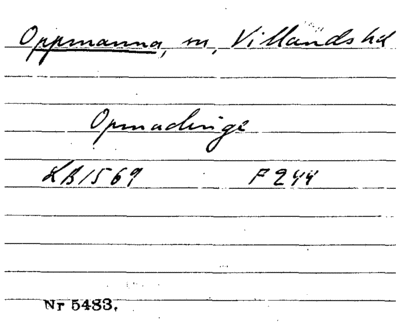 Oppmanna, sn, Villands hd
Opmadinge
LB 1569 F 244
Nr 5483.